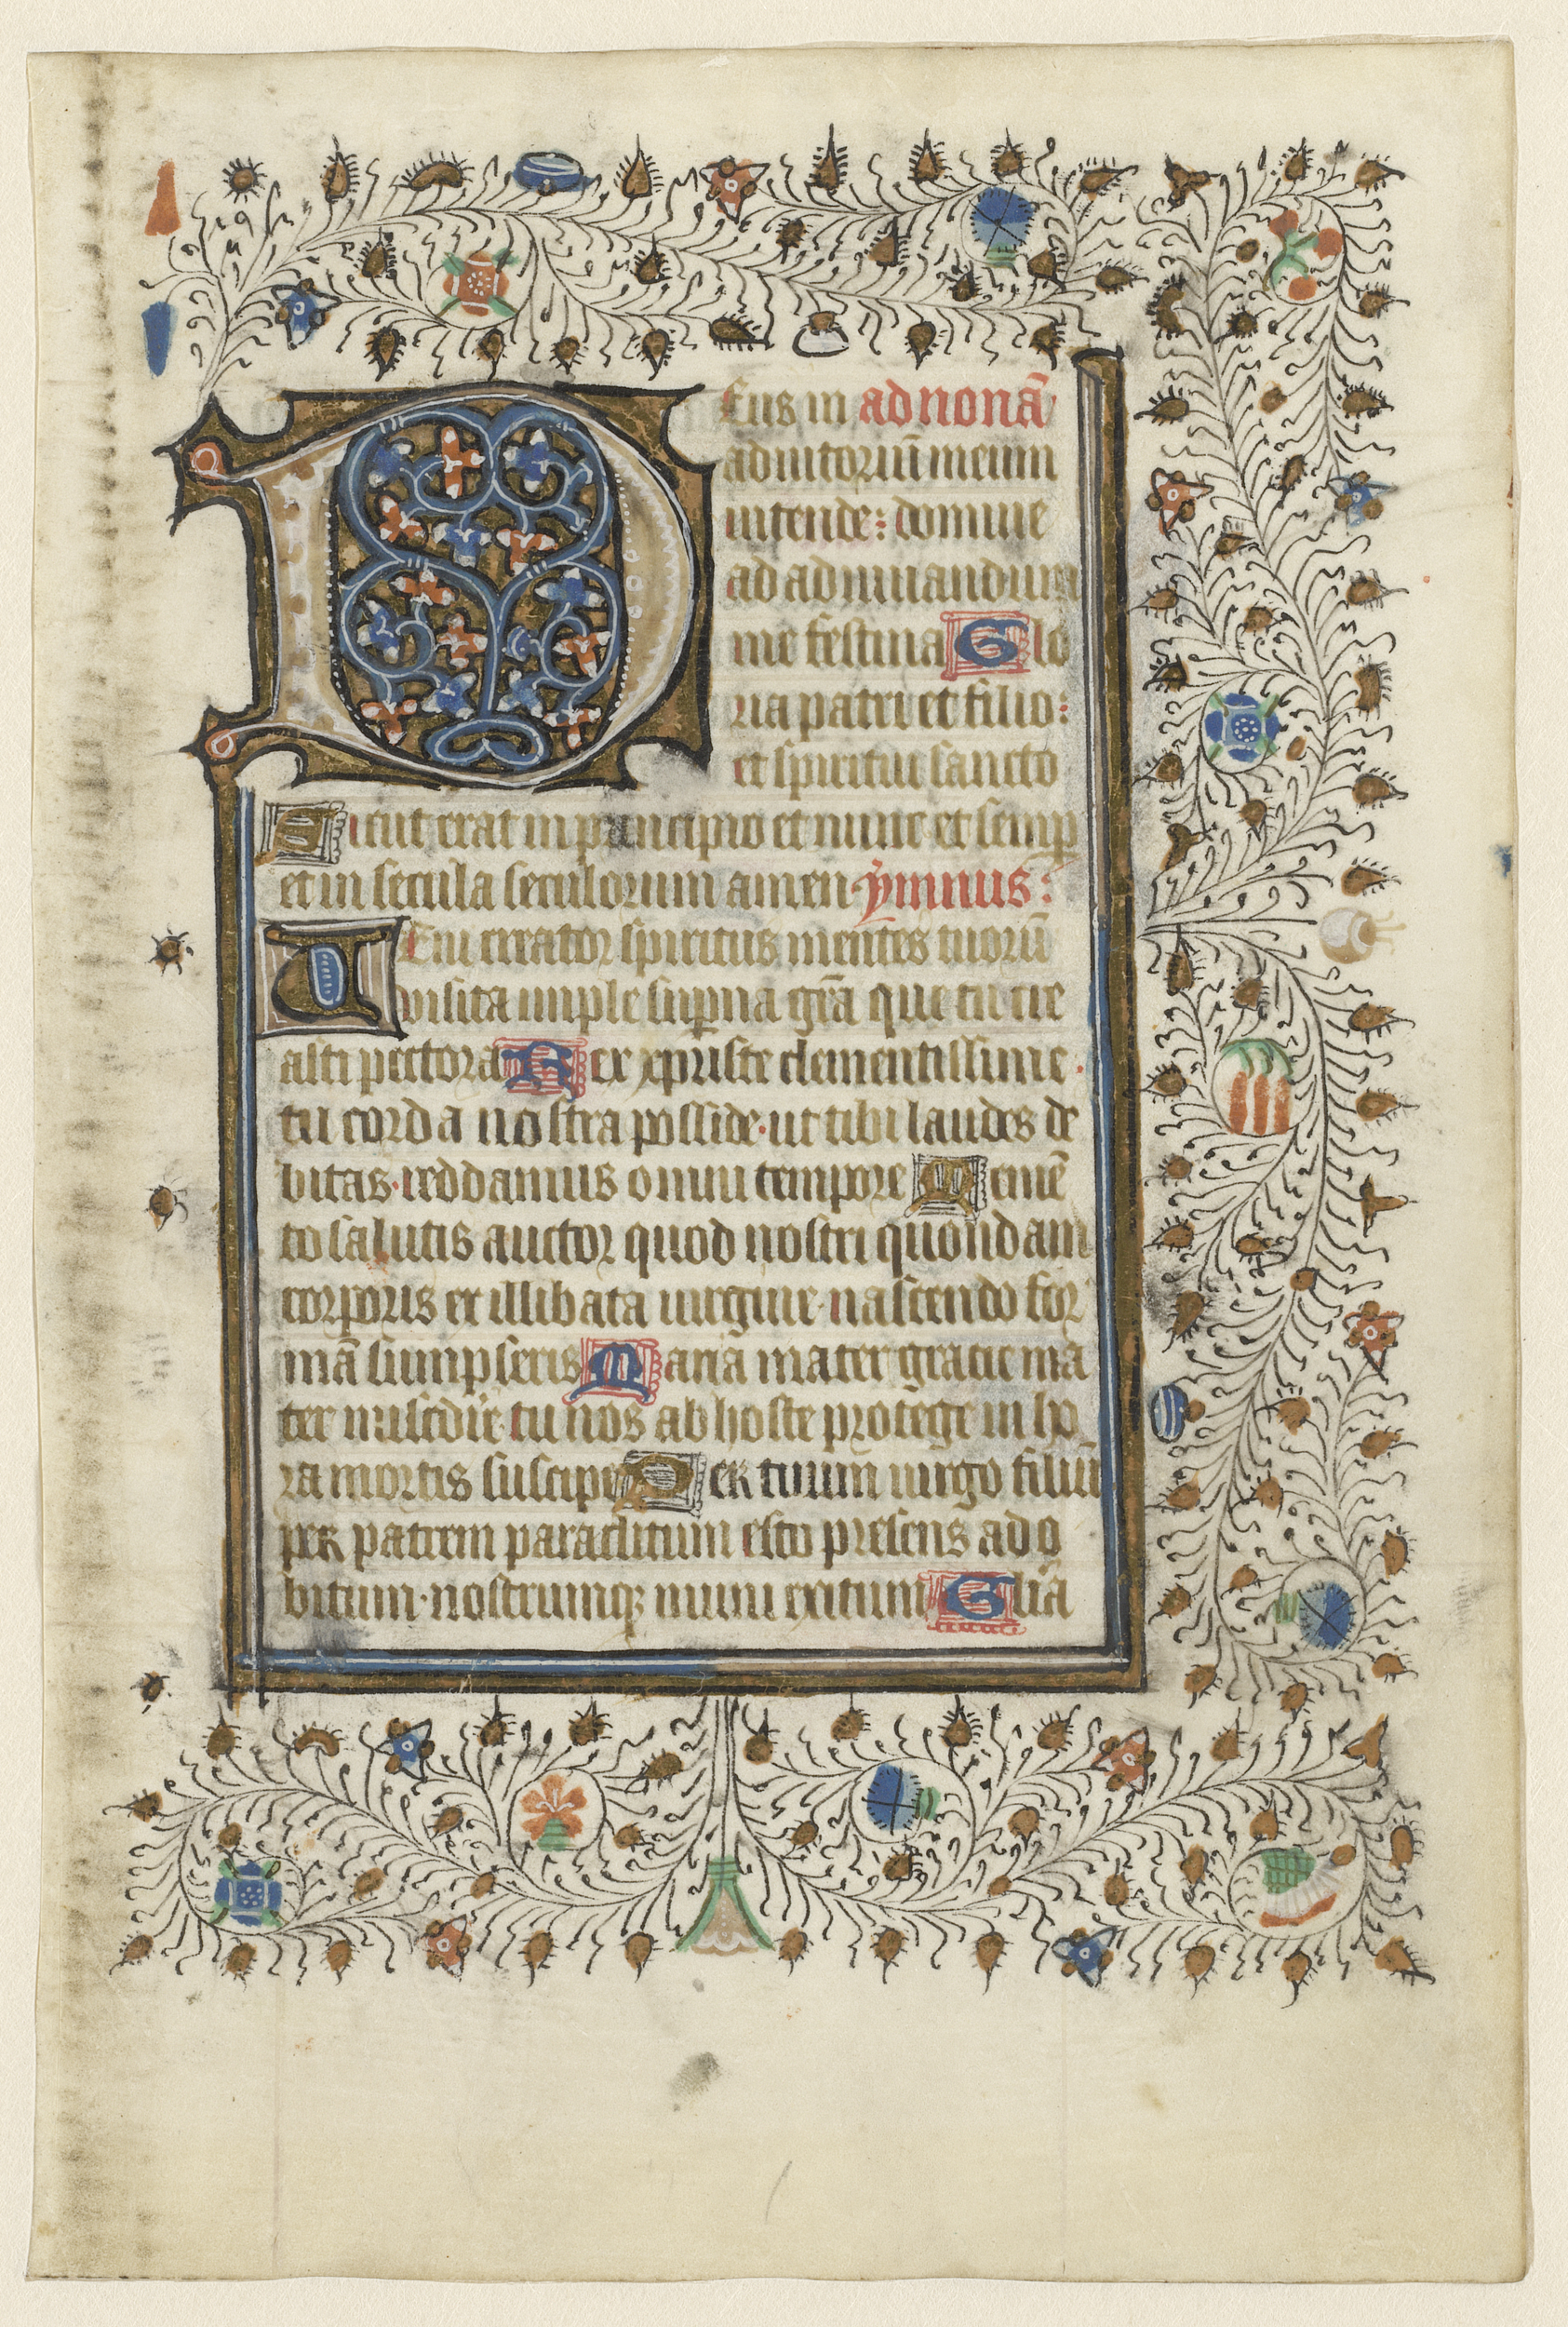 Deus in ad nonā
adiutoriū meum
intende: domine
ad adiuuandum
me festina Glo
ria patri et filio:
et spiritui sancto
Sicut erat in principio et nunc et semp
et in secula seculorum amen ymnus:
Ueni creator spiritus mentes tuorū
visita imple superna grā que tu cre
asti pectora Rex xpriste clementissime.
tu corda nostra posside. ut tibi laudes de
bitas. reddamus omni tempore Memē
to salutis auctor quod nostri quondam
corporis ex illibata uirgine. nascendo for
mā sumpseris Maria mater gracie ma
ter mīscdie. tu nos ab hoste protege in ho
ra mortis suscipe Per tuum uirgo filiū
per patrem paraclitum esto presens ad o
bitum. nostrumq; muni exitum Glīa